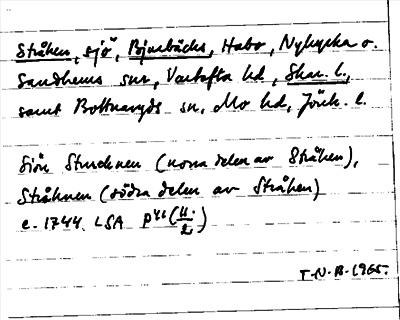 Stråken, sjö, Bjurbäcks, Habo, Nykyrka o.
Sandhems snr, Vartofta hd, Skar. l.,
samt Bottnaryds sn, Mo hd, Jönk. l.
Siön Struchnen (norra delen av Stråken),
Stråknen (södra delen av Stråken)
c. 1744 LSA
T-N-B-1965.